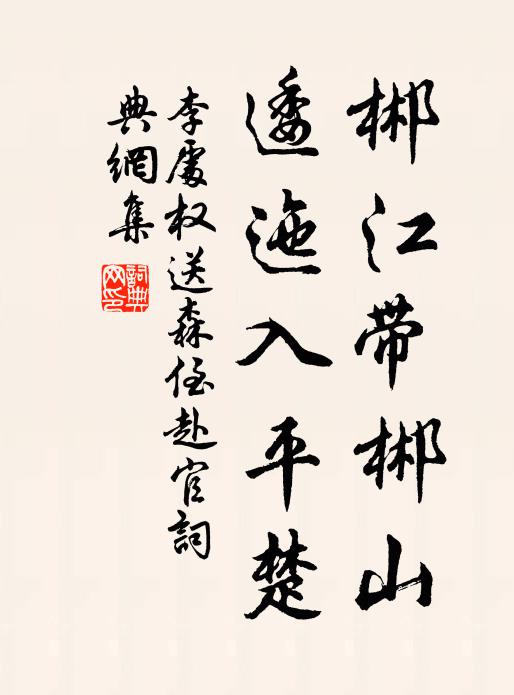 郴江带郴山
逶迤入平楚
李處权送森侄赴官詞
典網集
詞典网印